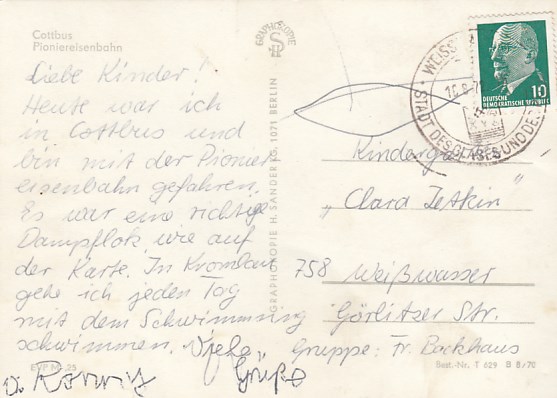 Cottbus
Pioniereisenbahn
Liebe Kinder!
Heute war ich
in Cottbus und
bin mit der Pionier
eisenbahn gefahren.
Es war eine richtige
Dampflok, wie auf
der Karte. In Kromlau
gehe ich jeden Tag
mit dem Schwimmring
schwimmen. Viele
Grüße
EVP M -,25
GRAPHOKOPIE
GRAPHOKOPIE H. SANDER KG, 1071 BERLIN
WEISS
STADT DES GLASES UND DER
DEUTSCHE
DEMOKRATISCHE REPUBLIK
10
Kindergarten
"Clara Zetkin"
758 Weißwasser
Görlitzer Str.
Gruppe: Fr. Backhaus
Best.-Nr. T 629 B 8/70